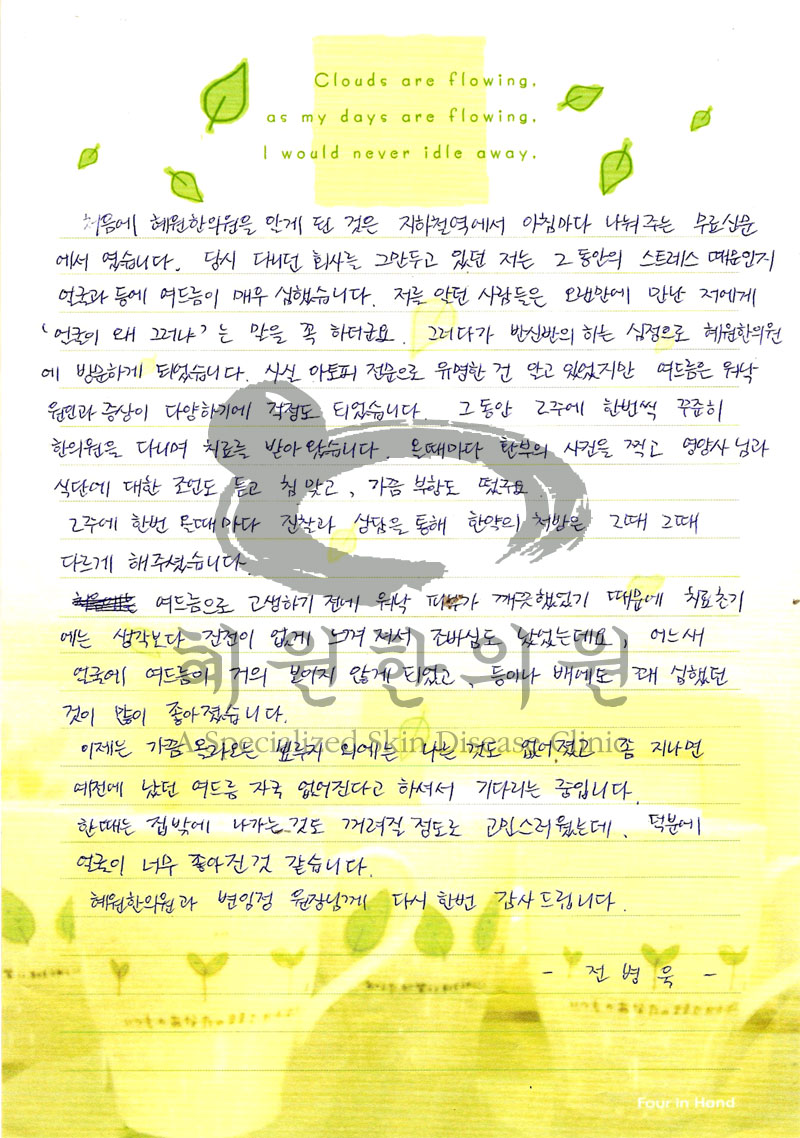 Clouds are flowing,
as my days are flowing.
I would never idle away.
처음에 혜원한의원을 알게 된 것은 지하철역에서 아침마다 나눠주는 무료신문
에서 였습니다. 당시 다니던 회사를 그만두고 있던 저는 그동안의 스트레스 때문인지
얼굴과 등에 여드름이 매우 심했습니다. 저를 알던 사람들은 오랜만에 만난 저에게
'얼굴이 왜 그러냐'는 말을 꼭 하더군요. 그러다가 반신반의 하는 심정으로 혜원한의원
에 방문하게 되었습니다. 사실 아토피 전문으로 유명한 건 알고 있었지만 여드름은 워낙
원인과 증상이 다양하기에 걱정도 되었습니다. 그동안 2주에 한번씩 꾸준히
한의원을 다니며 치료를 받아왔습니다. 올때마다 환부의 사진을 찍고 영양사님과
식단에 대한 조언도 듣고 침 맞고, 가끔 부항도 떴구요.
2주에 한번 올때마다 진찰과 상담을 통해 한약의 처방은 그때 그때
다르게 해주셨습니다.
여드름으로 고생하기 전에 워낙 피부가 깨끗했었기 때문에 치료초기
에는 생각보다 진전이 없게 느껴져서 조바심도 났었는데요, 어느새
얼굴에 여드름이 거의 보이지 않게 되었고, 등이나 배에도 꽤 심했던
것이 많이 좋아졌습니다.
이제는 가끔 올라오는 뾰루지 외에는 나는 것도 없어졌고 좀 지나면
예전에 났던 여드름 자국 없어진다고 하셔서 기다리는 중입니다.
한때는 집밖에 나가는 것도 꺼려질 정도로 고민스러웠는데, 덕분에
얼굴이 너무 좋아진것 같습니다.
혜원한의원과 변임정 원장님께 다시 한번 감사드립니다.
- 전병욱 -
혜원한의원
A Specialized Skin Disease Clinic
Four in Hand